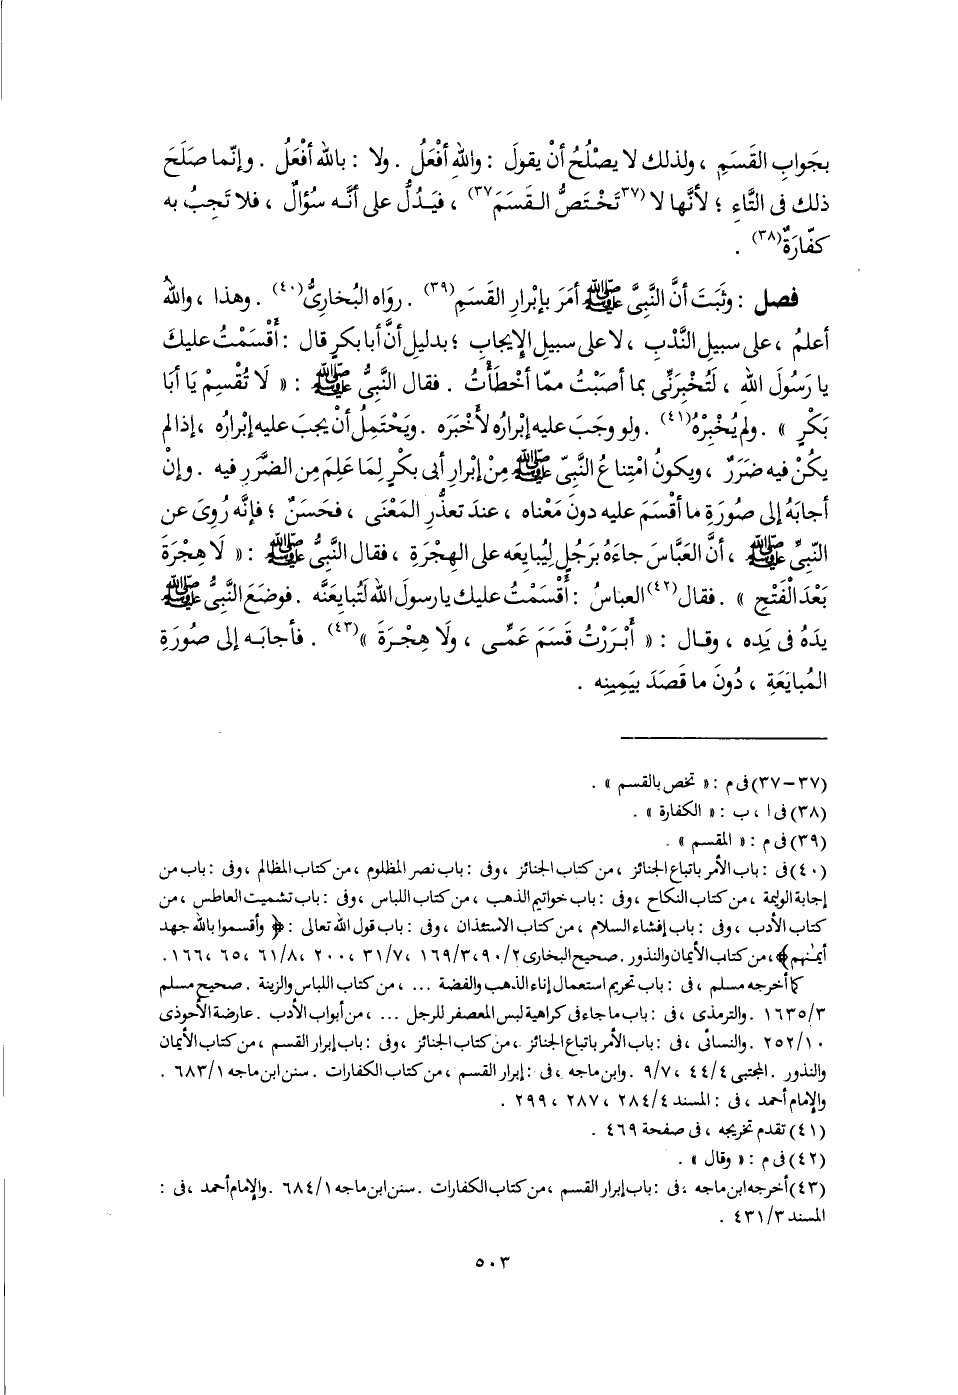 بجَوابِ القَسَمِ ، ولذلك لا يصْلُحُ أنْ يقولَ : واللهِ أفْعَلُ . ولا : بالله أفْعَلُ . وإنّما صلَحَ
ذلك فى التَّاءِ ؛ لأنَّها لا (٣٧تَخْتَصُّ القَسَمَ٣٧) ، فيَدُلُّ على أنَّه سُؤالٌ ، فلا تَجِبُ به
كفّارَةٌ(٣٨) .
فصل : وثَبَتَ أنَّ النَّبِىَّ ﷺ أمَرَ بإبْرارِ القَسَمِ(٣٩) . رواه البُخارِىُّ(٤٠) . وهذا ، واللهُ
أعلمُ ، على سبيلِ النَّدْبِ ، لا على سبيلِ الإِيجابِ ؛ بدليلِ أنَّ أبا بكرٍ قال : أَقْسَمْتُ عليكَ
يا رَسُولَ الله ، لَتُخْبِرَنِّى بما أصَبْتُ ممّا أخْطَأْتُ . فقال النَّبِىُّ ﷺ : « لَا تُقْسِمْ يَا أبَا
بَكْرٍ » . ولم يُخْبِرْهُ(٤١) . ولو وجَبَ عليه إبْرارُه لأَخْبَرَه . ويَحْتَمِلُ أنْ يجبَ عليه إبْرارُه ، إذا لم
يكُنْ فيه ضَرَرٌ ، ويكونُ امْتِناعُ النَّبِىِّ ﷺ مِنْ إبْرارِ أبى بكْرٍ لِمَا عَلِمَ مِن الضَّرَرِ فيه . وإنْ
أجابَهُ إلى صُورَةِ ما أقْسَمَ عليه دونَ مَعْناه ، عندَ تعذُّرِ المَعْنَى ، فحَسَنٌ ؛ فإنَّه رُوِىَ عن
النّبِىِّ ﷺ ، أنَّ العَبَّاسَ جاءَهُ برَجُلٍ لِيُبايِعَه على الهِجْرَةِ ، فقال النَّبِىُّ ﷺ : « لَا هِجْرَةَ
بَعْدَ الْفَتْحِ » . فقال(٤٢) العباسُ : أَقْسَمْتُ عليك يا رسولَ الله لَتُبايِعَنَّه . فوضَعَ النَّبِىُّ ﷺ
يدَهُ فى يَدِه ، وقال : « أَبْرَرْتُ قَسَمَ عَمِّى ، ولَا هِجْرَةَ »(٤٣) . فأجابَه إلى صُورَةِ
المُبايَعَةِ ، دُونَ ما قَصَدَ بيَمِينِه .
(٣٧-٣٧) فى م : « تخص بالقسم » .
(٣٨) فى ا ، ب : « الكفارة » .
(٣٩) فى م : « المقسم » .
(٤٠) فى : باب الأمر باتباع الجنائز ، من كتاب الجنائز ، وفى : باب نصر المظلوم ، من كتاب المظالم ، وفى : باب من
إجابة الوليمة ، من كتاب النكاح ، وفى : باب خواتيم الذهب ، من كتاب اللباس ، وفى : باب تشميت العاطس ، من
كتاب الأدب ، وفى : باب إفشاء السلام ، من كتاب الاستئذان ، وفى : باب قول الله تعالى : ﴿ وأقسموا بالله جهد
أيمـٰنهم ﴾ ، من كتاب الأيمان والنذور . صحيح البخارى ٢/ ٩٠ ، ٣/ ١٦٩ ، ٧/ ٣١ ، ٢٠٠ ، ٨/ ٦١ ، ٦٥ ، ١٦٦ .
كما أخرجه مسلم ، فى : باب تحريم استعمال إناء الذهب والفضة ... ، من كتاب اللباس والزينة . صحيح مسلم
٣/ ١٦٣٥ . والترمذى ، فى : باب ما جاء فى كراهية لبس المعصفر للرجل ... ، من أبواب الأدب . عارضة الأحوذى
١٠/ ٢٥٢ . والنسائى ، فى : باب الأمر باتباع الجنائز ، من كتاب الجنائز ، وفى : باب إبرار القسم ، من كتاب الأيمان
والنذور . المجتبى ٤/ ٤٤ ، ٧/ ٩ . وابن ماجه ، فى : إبرار القسم ، من كتاب الكفارات . سنن ابن ماجه ١/ ٦٨٣ .
والإمام أحمد ، فى : المسند ٤/ ٢٨٤ ، ٢٨٧ ، ٢٩٩ .
(٤١) تقدم تخريجه ، فى صفحة ٤٦٩ .
(٤٢) فى م : « وقال » .
(٤٣) أخرجه ابن ماجه ، فى : باب إبرار القسم ، من كتاب الكفارات . سنن ابن ماجه ١/ ٦٨٤ . والإمام أحمد ، فى :
المسند ٣/ ٤٣١ .
٥٠٣